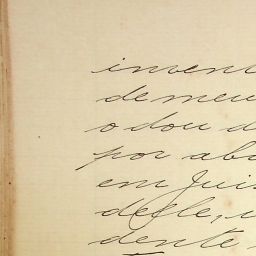 inven
de meu
o dou d
por ab
em Jui
delle, 
dente